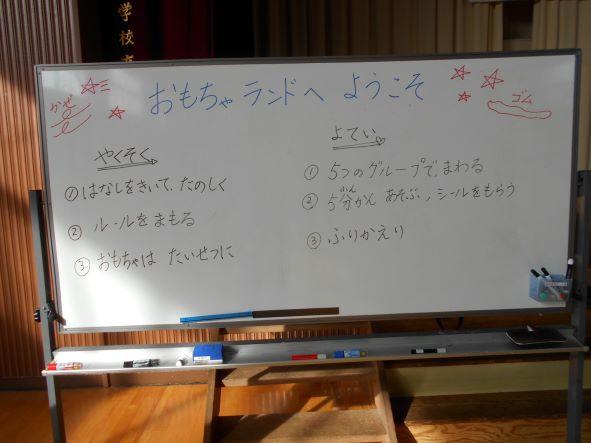 学校
おもちゃランドへ ようこそ
かぜ
ゴム
やくそく
① はなしをきいて、たのしく
② ルールをまもる
③ おもちゃは たいせつに
よてい
① 5つのグループで、まわる
② 5分かん あそぶ、シールをもらう
ふん
③ ふりかえり